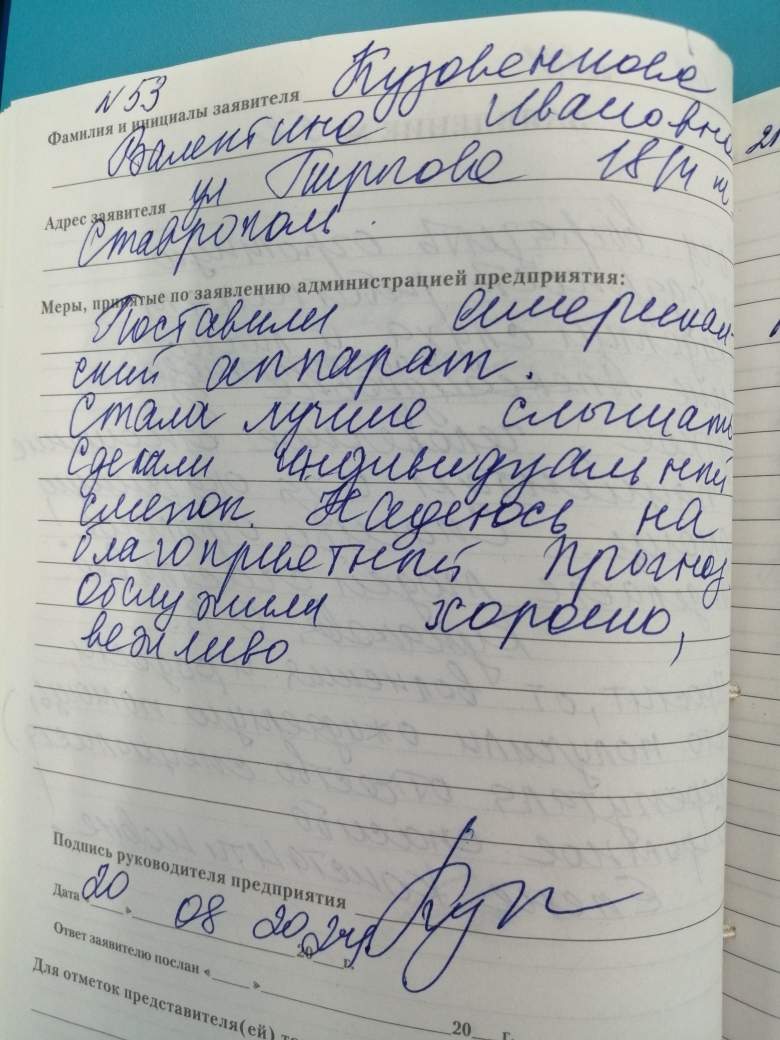 N 53
Фамилия и инициалы заявителя Кузовенкова
Валентина Ивановна
Адрес заявителя ул Пирогова 18/4
Ставрополь.
Меры, принятые по заявлению администрацией предприятия:
Поставили американ-
ский аппарат.
Стала лучше слышать
сделали индивидуальный
слепок. Надеюсь на
благоприятный прогноз
обслужили хорошо,
вежливо
Подпись руководителя предприятия
Дата «20» 08 2024г.
20 г.
Ответ заявителю послан « » 20 г.
Для отметок представителя(ей)
21